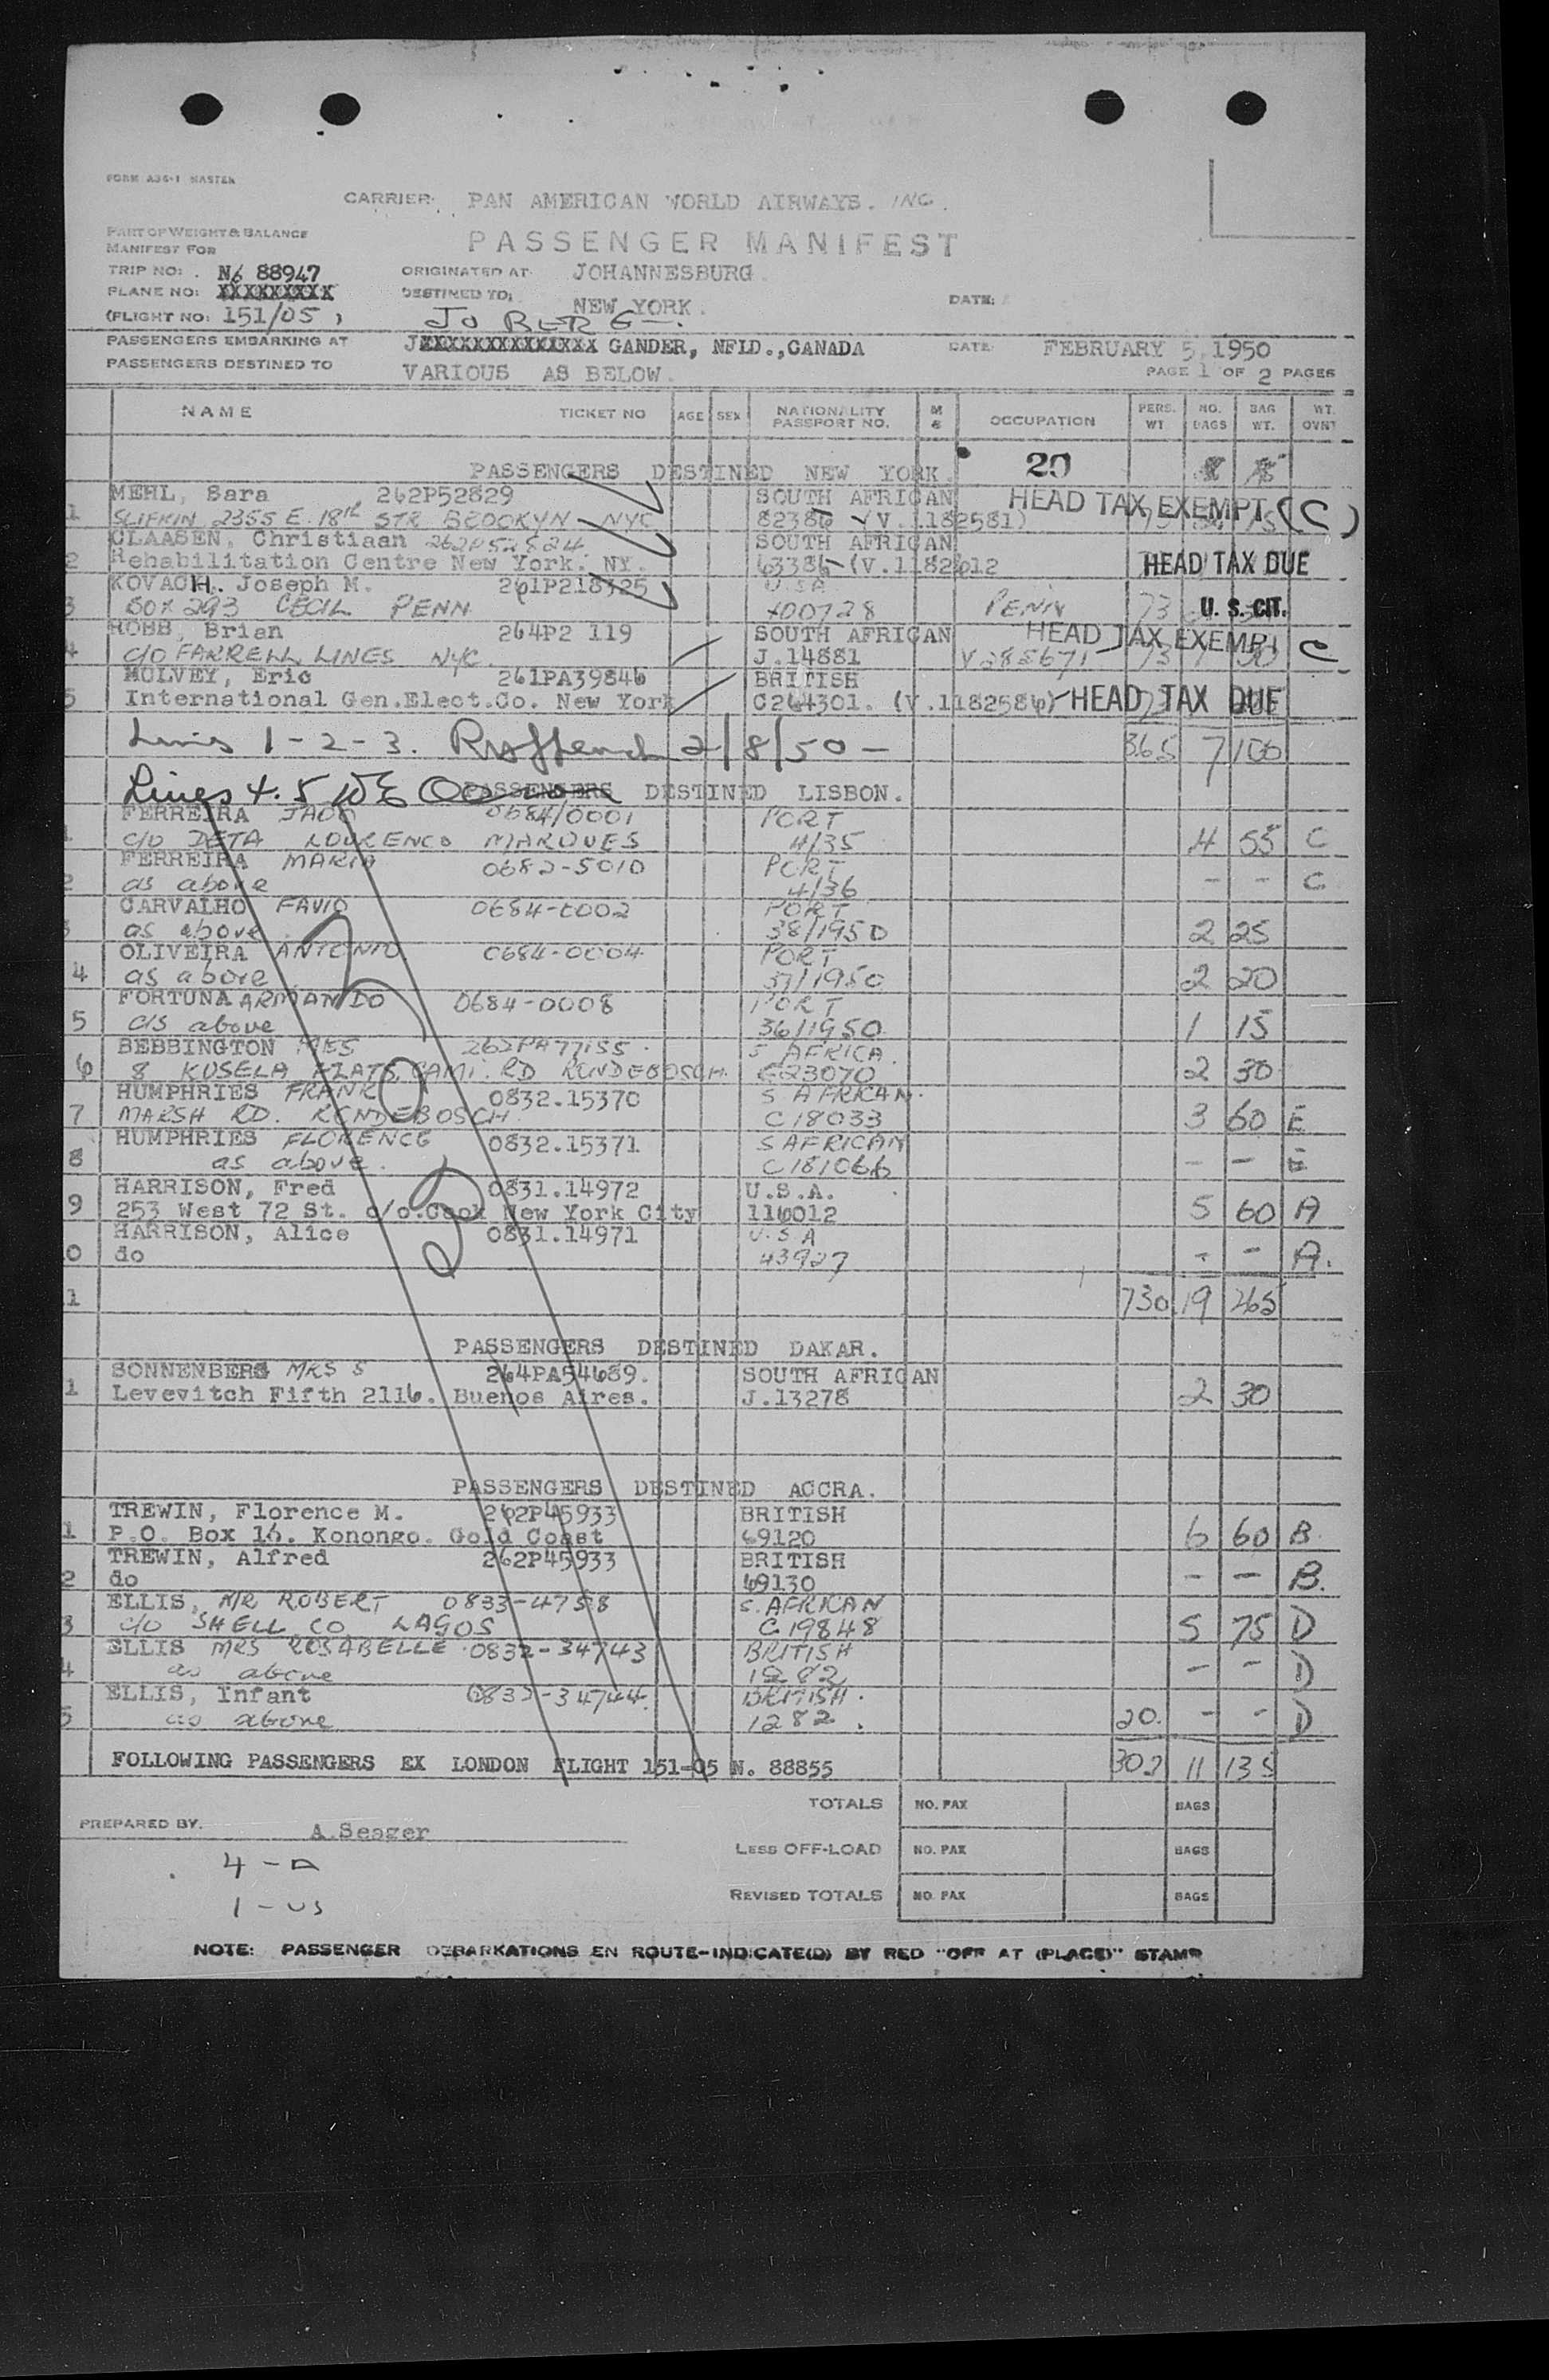 FORM A36-1 MASTER
CARRIER: PAN AMERICAN WORLD AIRWAYS. INC.
PART OF WEIGHT & BALANCE
MANIFEST FOR
PASSENGER MANIFEST
TRIP NO: N6 88947 ORIGINATED AT JOHANNESBURG.
PLANE NO: XXXXXXXXX DESTINED TO: NEW YORK. DATE:
(FLIGHT NO: 151/05 ) JOBERG.
PASSENGERS EMBARKING AT JXXXXXXXXXXXXXXX GANDER, NFLD.,CANADA DATE: FEBRUARY 5, 1950
PASSENGERS DESTINED TO VARIOUS AS BELOW. PAGE 1 OF 2 PAGES
NAME TICKET NO AGE SEX NATIONALITY PASSPORT NO. M & OCCUPATION PERS. WT NO. BAGS BAG WT. WT. OVNT
PASSENGERS DESTINED NEW YORK. 20
MEHL, Sara 262P52829 SOUTH AFRICAN HEAD TAX EXEMPT (C)
1 SLIFKIN 2355 E. 18th STR BROOKYN NYC 82386 (V.1182581)
CLAASEN, Christiaan 262P52824 SOUTH AFRICAN
2 Rehabilitation Centre New York. NY. 63386 (V.1182612 HEAD TAX DUE
KOVACH. Joseph M. 261P218325 U.S.A
3 BOX 293 CECIL PENN. 400728 PENN 73 U. S. CIT.
ROBB, Brian 264P2 119 SOUTH AFRICAN HEAD TAX EXEMPT C
4 c/o FARRELL LINES NYC. J.14881 V285671 73 1 30
MCLVEY, Eric 261PA39846 BRITISH
5 International Gen.Elect.Co. New York C264301. (V.1182586) HEAD TAX DUE
Lines 1-2-3. 2/8/50 - 365 7 100
Lines 4.5 PASSENGERS DESTINED LISBON.
FERREIRA JAOO 0684/0001 PORT
1 c/o DETA LOURENCO MARQUES 4/35 4 55 C
FERREIRA MARIA 0682-5010 PORT
2 as above 4/36 - - C
CARVALHO FAVIO 0684-0002 PORT
3 as above. 38/1950 2 25
OLIVEIRA ANTONIO 0684-0004 PORT
4 as above 37/1950 2 20
FORTUNA ARMANDO 0684-0008 PORT
5 as above 36/1950 1 15
BEBBINGTON MRS 262PA77155. S AFRICA.
6 8 KUSELA FLATS, CAMP. RD RONDEBOSCH. C23070 2 30
HUMPHRIES FRANK 0832.15370 S AFRICAN.
7 MARSH RD. RONDEBOSCH. C18033 3 60 E
HUMPHRIES FLORENCE 0832.15371 S AFRICAN
8 as above. C181066 - - E
HARRISON, Fred 0831.14972 U.S.A.
9 253 West 72 St. c/o.Cook New York City 116012 5 60 A
HARRISON, Alice 0831.14971 U.S.A
0 do 43927 - - A.
1 730 19 265
PASSENGERS DESTINED DAKAR.
SONNENBERG MRS S 264PA54689. SOUTH AFRICAN
1 Levevitch Fifth 2116. Buenos Aires. J.13278 2 30
PASSENGERS DESTINED ACCRA.
TREWIN, Florence M. 262P45933 BRITISH
1 P.O. Box 16. Konongo. Gold Coast 69120 6 60 B
TREWIN, Alfred 262P45933 BRITISH
2 do 69130 - - B.
ELLIS, MR ROBERT 0833-4758 S. AFRICAN
3 c/o SHELL CO LAGOS C.19848 5 75 D
ELLIS MRS ROSABELLE 0832-34743 BRITISH
4 as above 1282 - - D
ELLIS, Infant 0832-34744. BRITISH.
5 as above 1282. 20. - - D
FOLLOWING PASSENGERS EX LONDON FLIGHT 151-05 N. 88855 302 11 135
TOTALS NO. PAX BAGS
PREPARED BY. A.Seager
LESS OFF-LOAD NO. PAX BAGS
4 - A
REVISED TOTALS NO. PAX BAGS
1 - US
NOTE: PASSENGER DEBARKATIONS EN ROUTE-INDICATE(D) BY RED "OFF AT (PLACE)" STAMP